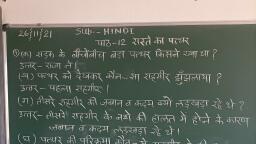 26/11/21 SUB- HINDI
पाठ-12 रास्ते का पत्थर
प्र०(क) सड़क के बीचोंबीच बड़ा पत्थर किसने रखा था?
उत्तर- राजा ने।
(ख) पत्थर को देखकर कौन-सा राहगीर झुँझलाया?
उत्तर- पहला राहगीर।
(ग) तीसरे राहगीर की जबान व कदम क्यों लड़खड़ा रहे थे?
उत्तर- तीसरे राहगीर के नशे की हालत में होने के कारण
जबान व कदम लड़खड़ा रहे थे।
(घ) पत्थर की परिक्रमा कौन